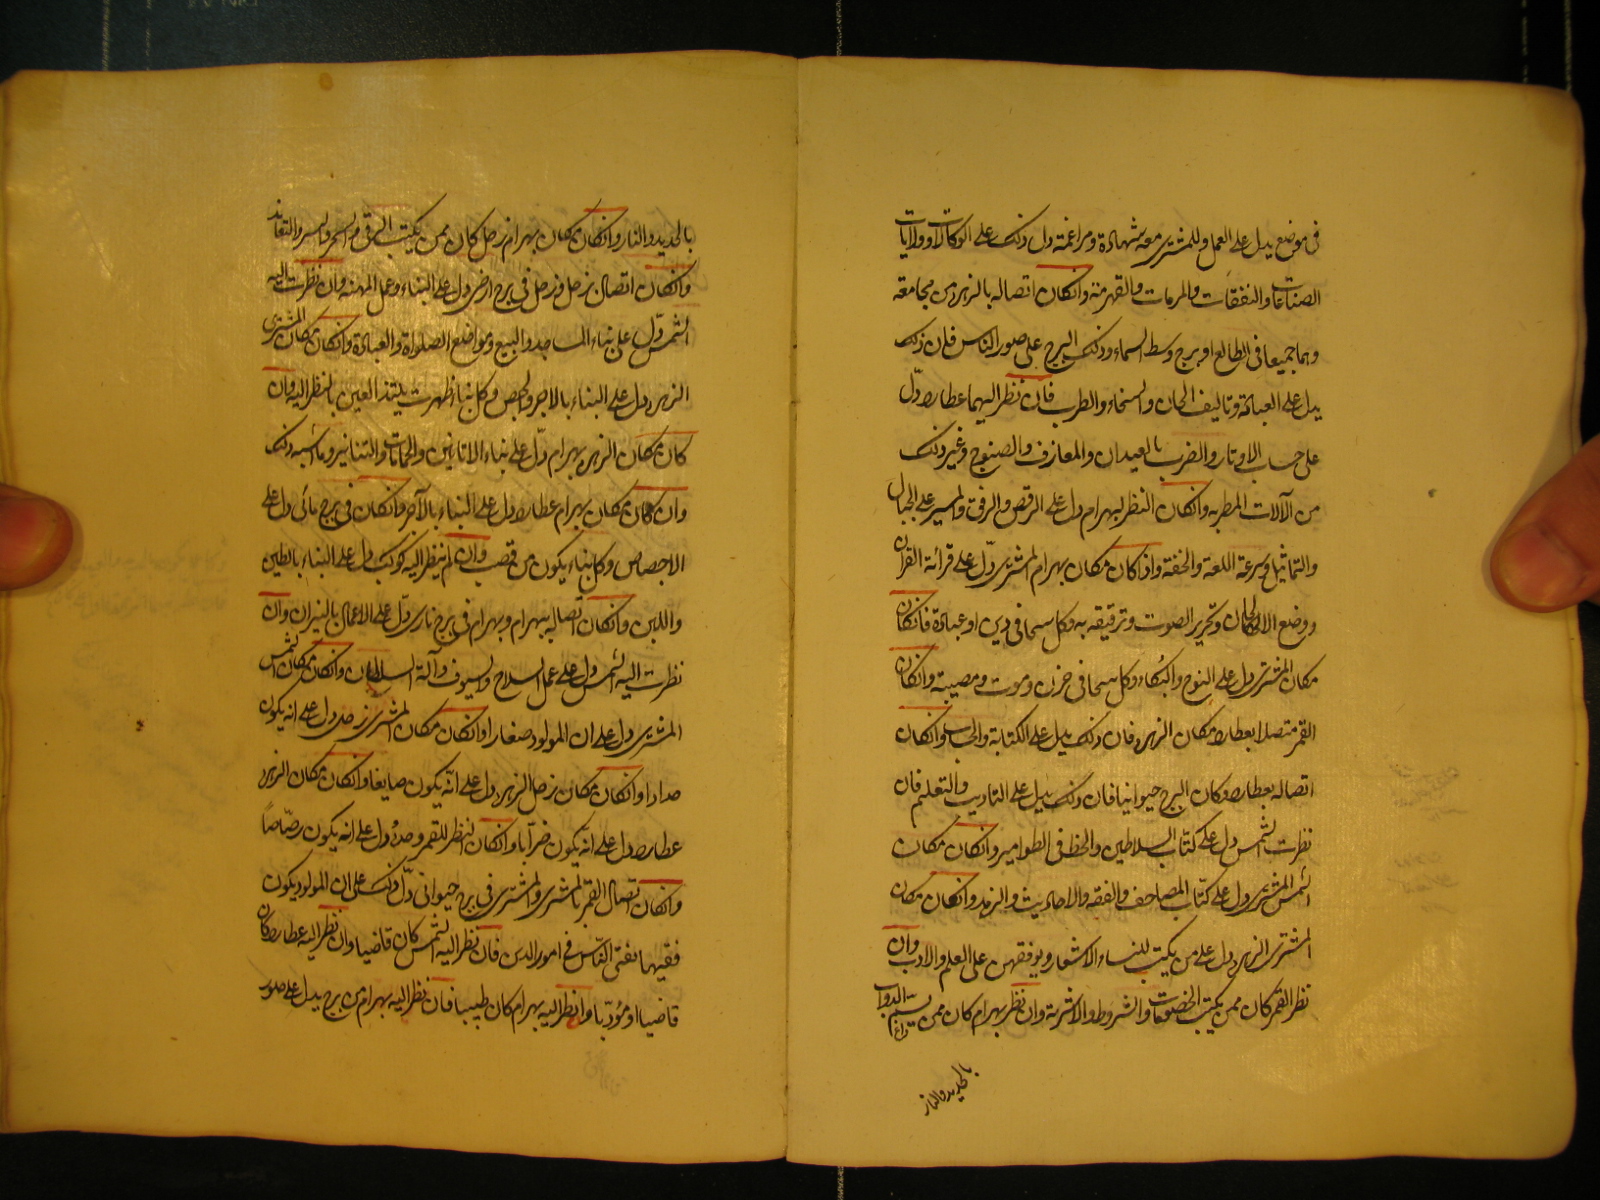 فى موضع يدل على العمل وللمشترى معه شهادة ومزاعمة دل ذلك على الوكالات وولايات
الصناعات والنفقات والمرمات والقهرمة وانكان اتصاله بالزهره من مجامعة
وهما جميعا فى الطالع او برج وسط السماء وذلك البرج على صور الناس فان ذلك
يدل على العبادة وتاليف الحان والسخاء والطرب فان نظر اليهما عطارد دلّ
على حساب الاوتار والضرب بالعيدان والمعازف والصنوج وغير ذلك
من الآلات المطربه وانكان النظر لبهرام دل على الرقص والزفن والمسير على الجبال
والتماثيل وسرعة اللعبة والخفة واذا كان مكان بهرام المشترى دلّ على قرائة القران
ووضع الالحان وتحرير الصوت وترقيقه به وكل سحا فى دين او عبادة فانكان
مكان المشترى دل على النوح والبكاء وكل سحا فى حزن وموت ومصيبة وانكان
القمر متصلا بعطارد مكان الزهره فان ذلك يدل على الكتابة والحساب وانكان
اتصاله بعطارد وكان البرج حيوانيا فان ذلك يدل على التاديب والتعليم فان
نظرت الشمس دل على كتّاب السلاطين والخط فى الطوامير وانكان مكان
الشمس المشترى دل على كتّاب المصاحف والفقه والاحاديث والزهد وانكان مكان
المشترى الزهره دل على من يكتب للنساء الاشعار ويوفقهن على العلم والادب وان
نظر القمر كان ممن يكتب الخصومات والشروط والاشرية وان نظر بهرام كان ممن يسم الدواب
بالحديد والنار
بالحديد والنار وانكان مكان بهرام زحل كان ممن يكتب الرقى والسحر والتعاند
وانكان اتصال زحل وزحل فى برج ارضى دل على البناء وعمل المهنة وان نظرت اليه
الشمس دلّ على بناء المساجد والبيع ومواضع الصلواة والعبادة وانكان مكان المشترى
الزهره دل على البناء بالاجر والجص وكل بناء ظهرت يلتذ العين بالنظر اليه وان
كان مكان الزهره بهرام دلّ على بناء الاتاتين والحمامات والتنانير وما اشبه ذلك
وان كان مكان بهرام عطارد دل على البناء بالآجر وانكان فى برج مائى دل على
الاجصاص وكل بناء يكون من قصب وان لم ينظر اليه كوكب دل على البناء بالطين
واللبن وانكان اتصاله ببهرام وبهرام فى برج نارى دلّ على الاعمال بالنيران وان
نظرت اليه الشمس دل على عمل السلاح والسيوف وآلة السلاطان وانكان مكان الشمس
المشترى دل على ان المولود صغارا وانكان مكان المشترى زحل دل على انه يكون
حدادا وانكان مكان زحل الزهره دل على انّه يكون صايغا وانكان مكان الزهره
عطارد دل على انه يكون ضرّابا وانكان النظر للقمر وحدهُ دل على انه يكون رصّاصاً
وانكان اتصال القمر بالمشترى والمشترى فى برج حيوانى دلّ ذلك على ان المولود يكون
فقيها يفتى النّاس فى امور الدين فان نظر اليه الشمس كان قاضيا وان نظر اليه عطارد كان
قاضيا او مؤدّبا وانظر اليه بهرام كان طبيبا فان نظر اليه بهرام من برج يدل على صور